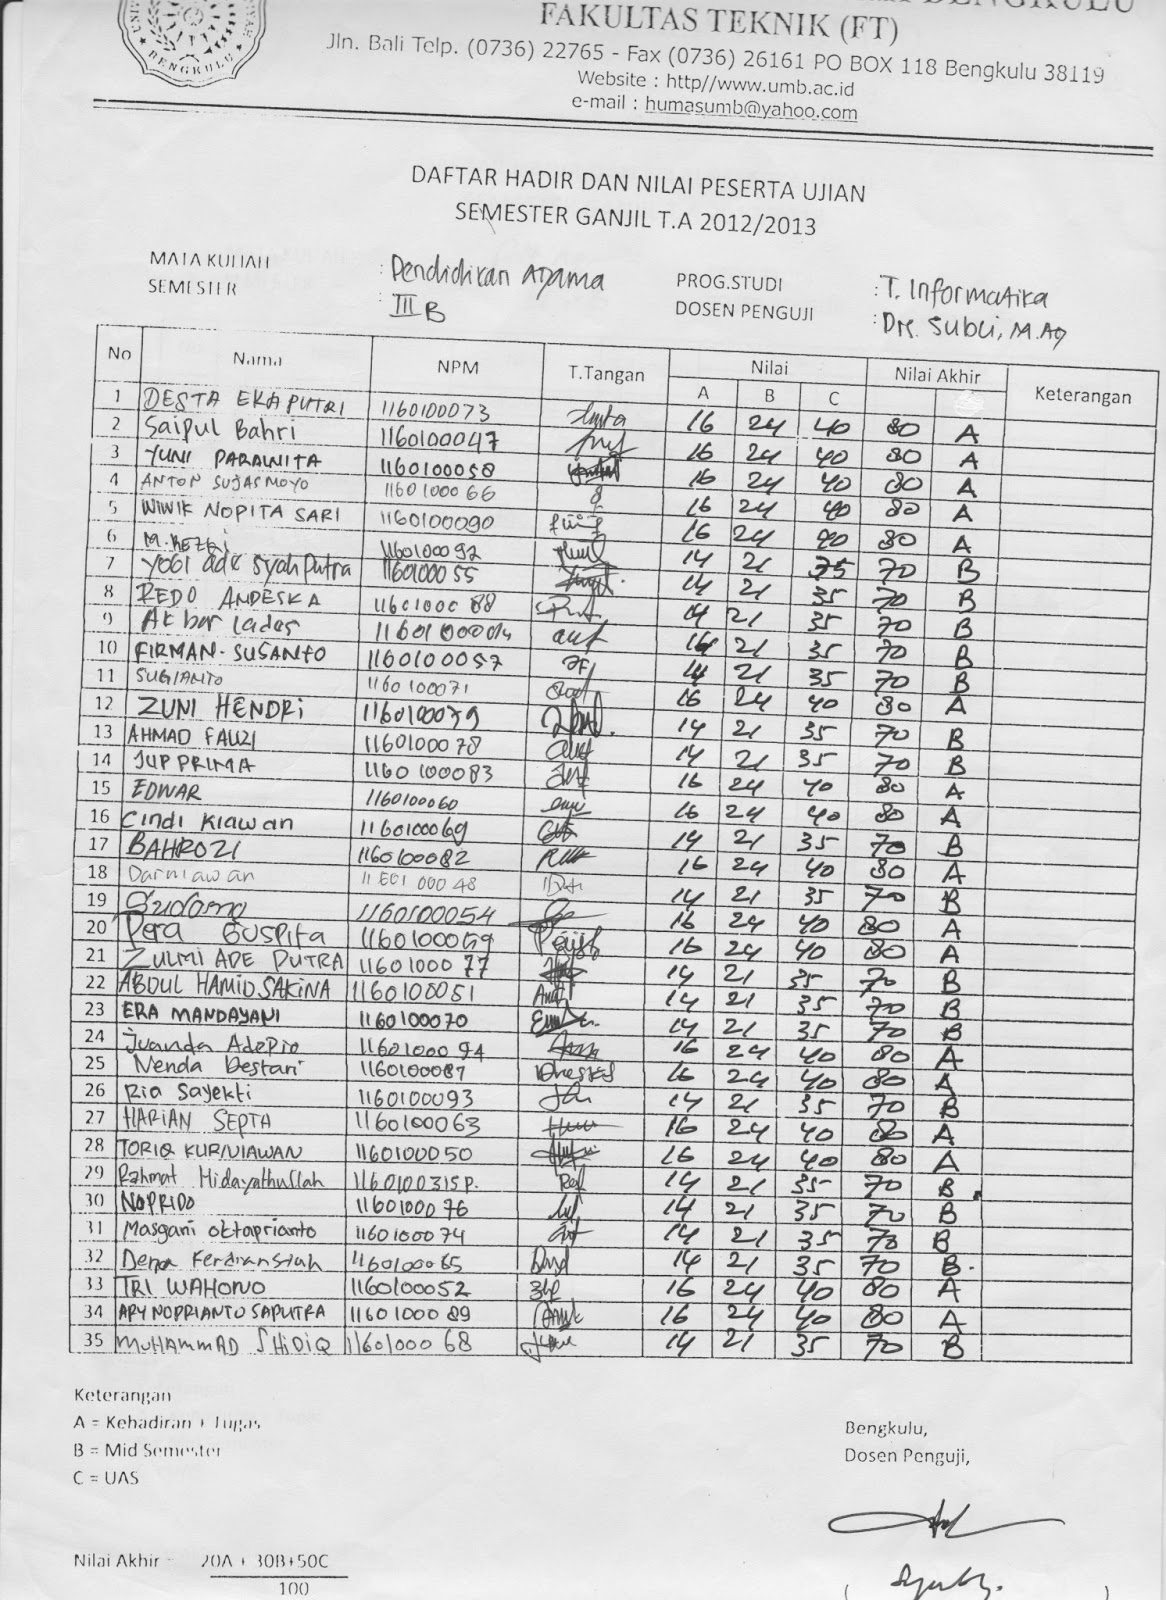 BENGKULU
FAKULTAS TEKNIK (FT)
Jln. Bali Telp. (0736) 22765 - Fax (0736) 26161 PO BOX 118 Bengkulu 38119
Website : http//www.umb.ac.id
e-mail : humasumb@yahoo.com
DAFTAR HADIR DAN NILAI PESERTA UJIAN
SEMESTER GANJIL T.A 2012/2013
MATA KULIAH : Pendidikan Agama PROG.STUDI : T. Informatika
SEMESTER : III B DOSEN PENGUJI : Drs. Subli, M.Ag
No Nama NPM T.Tangan Nilai Nilai Akhir Keterangan
A B C
1 DESTA EKA PUTRI 1160100073 16 24 40 80 A
2 Saipul Bahri 1160100047 16 24 40 80 A
3 YUNI PARAWITA 1160100058 16 24 40 80 A
4 ANTON SUJASMOYO 1160100066 16 24 40 80 A
5 WIWIK NOPITA SARI 1160100090 16 24 40 80 A
6 M. REZKI 1160100092 14 21 35 70 B
7 Yogi ade syah Putra 1160100055 14 21 35 70 B
8 REDO ANDESKA 1160100088 14 21 35 70 B
9 Akbar 14 21 35 70 B
10 FIRMAN SUSANTO 1160100057 14 21 35 70 B
11 SUGIANTO 1160100071 16 24 40 80 A
12 ZUNI HENDRI 14 21 35 70 B
13 AHMAD FAUZI 1160100078 14 21 35 70 B
14 JUPPRIMA 1160100083 16 24 40 80 A
15 EDWAR 1160100060 16 24 40 80 A
16 Cindi Kiawan 1160100069 14 21 35 70 B
17 BAHROZI 1160100082 16 24 40 80 A
18 Darniawan 14 21 35 70 B
19 1160100054 16 24 40 80 A
20 Pera Guspita 16 24 40 80 A
21 ZULMI ADE PUTRA 1160100077 14 21 35 70 B
22 ABDUL HAMID SAKINA 1160100051 14 21 35 70 B
23 ERA MANDAYANI 1160100070 14 21 35 70 B
24 Juanda Adepio 16 24 40 80 A
25 Nenda Destari 1160100087 16 24 40 80 A
26 Ria Sayekti 1160100093 14 21 35 70 B
27 HARIAN SEPTA 1160100063 16 24 40 80 A
28 TORIQ KURNIAWAN 1160100050 16 24 40 80 A
29 Rahmat Hidayathullah 1160100315P. 14 21 35 70 B
30 NOPRIDO 1160100076 14 21 35 70 B
31 Masgani Oktaprianto 1160100074 14 21 35 70 B
32 Depa Ferdiansiah 1160100065 14 21 35 70 B
33 TRI WAHONO 1160100052 16 24 40 80 A
34 ARY NOPRIANTO SAPUTRA 1160100089 16 24 40 80 A
35 MUHAMMAD SHIDIQ 1160100068 14 21 35 70 B
Keterangan
A = Kehadiran + Tugas
B = Mid Semester
C = UAS
Bengkulu,
Dosen Penguji,
Nilai Akhir = 20A + 30B+50C
100